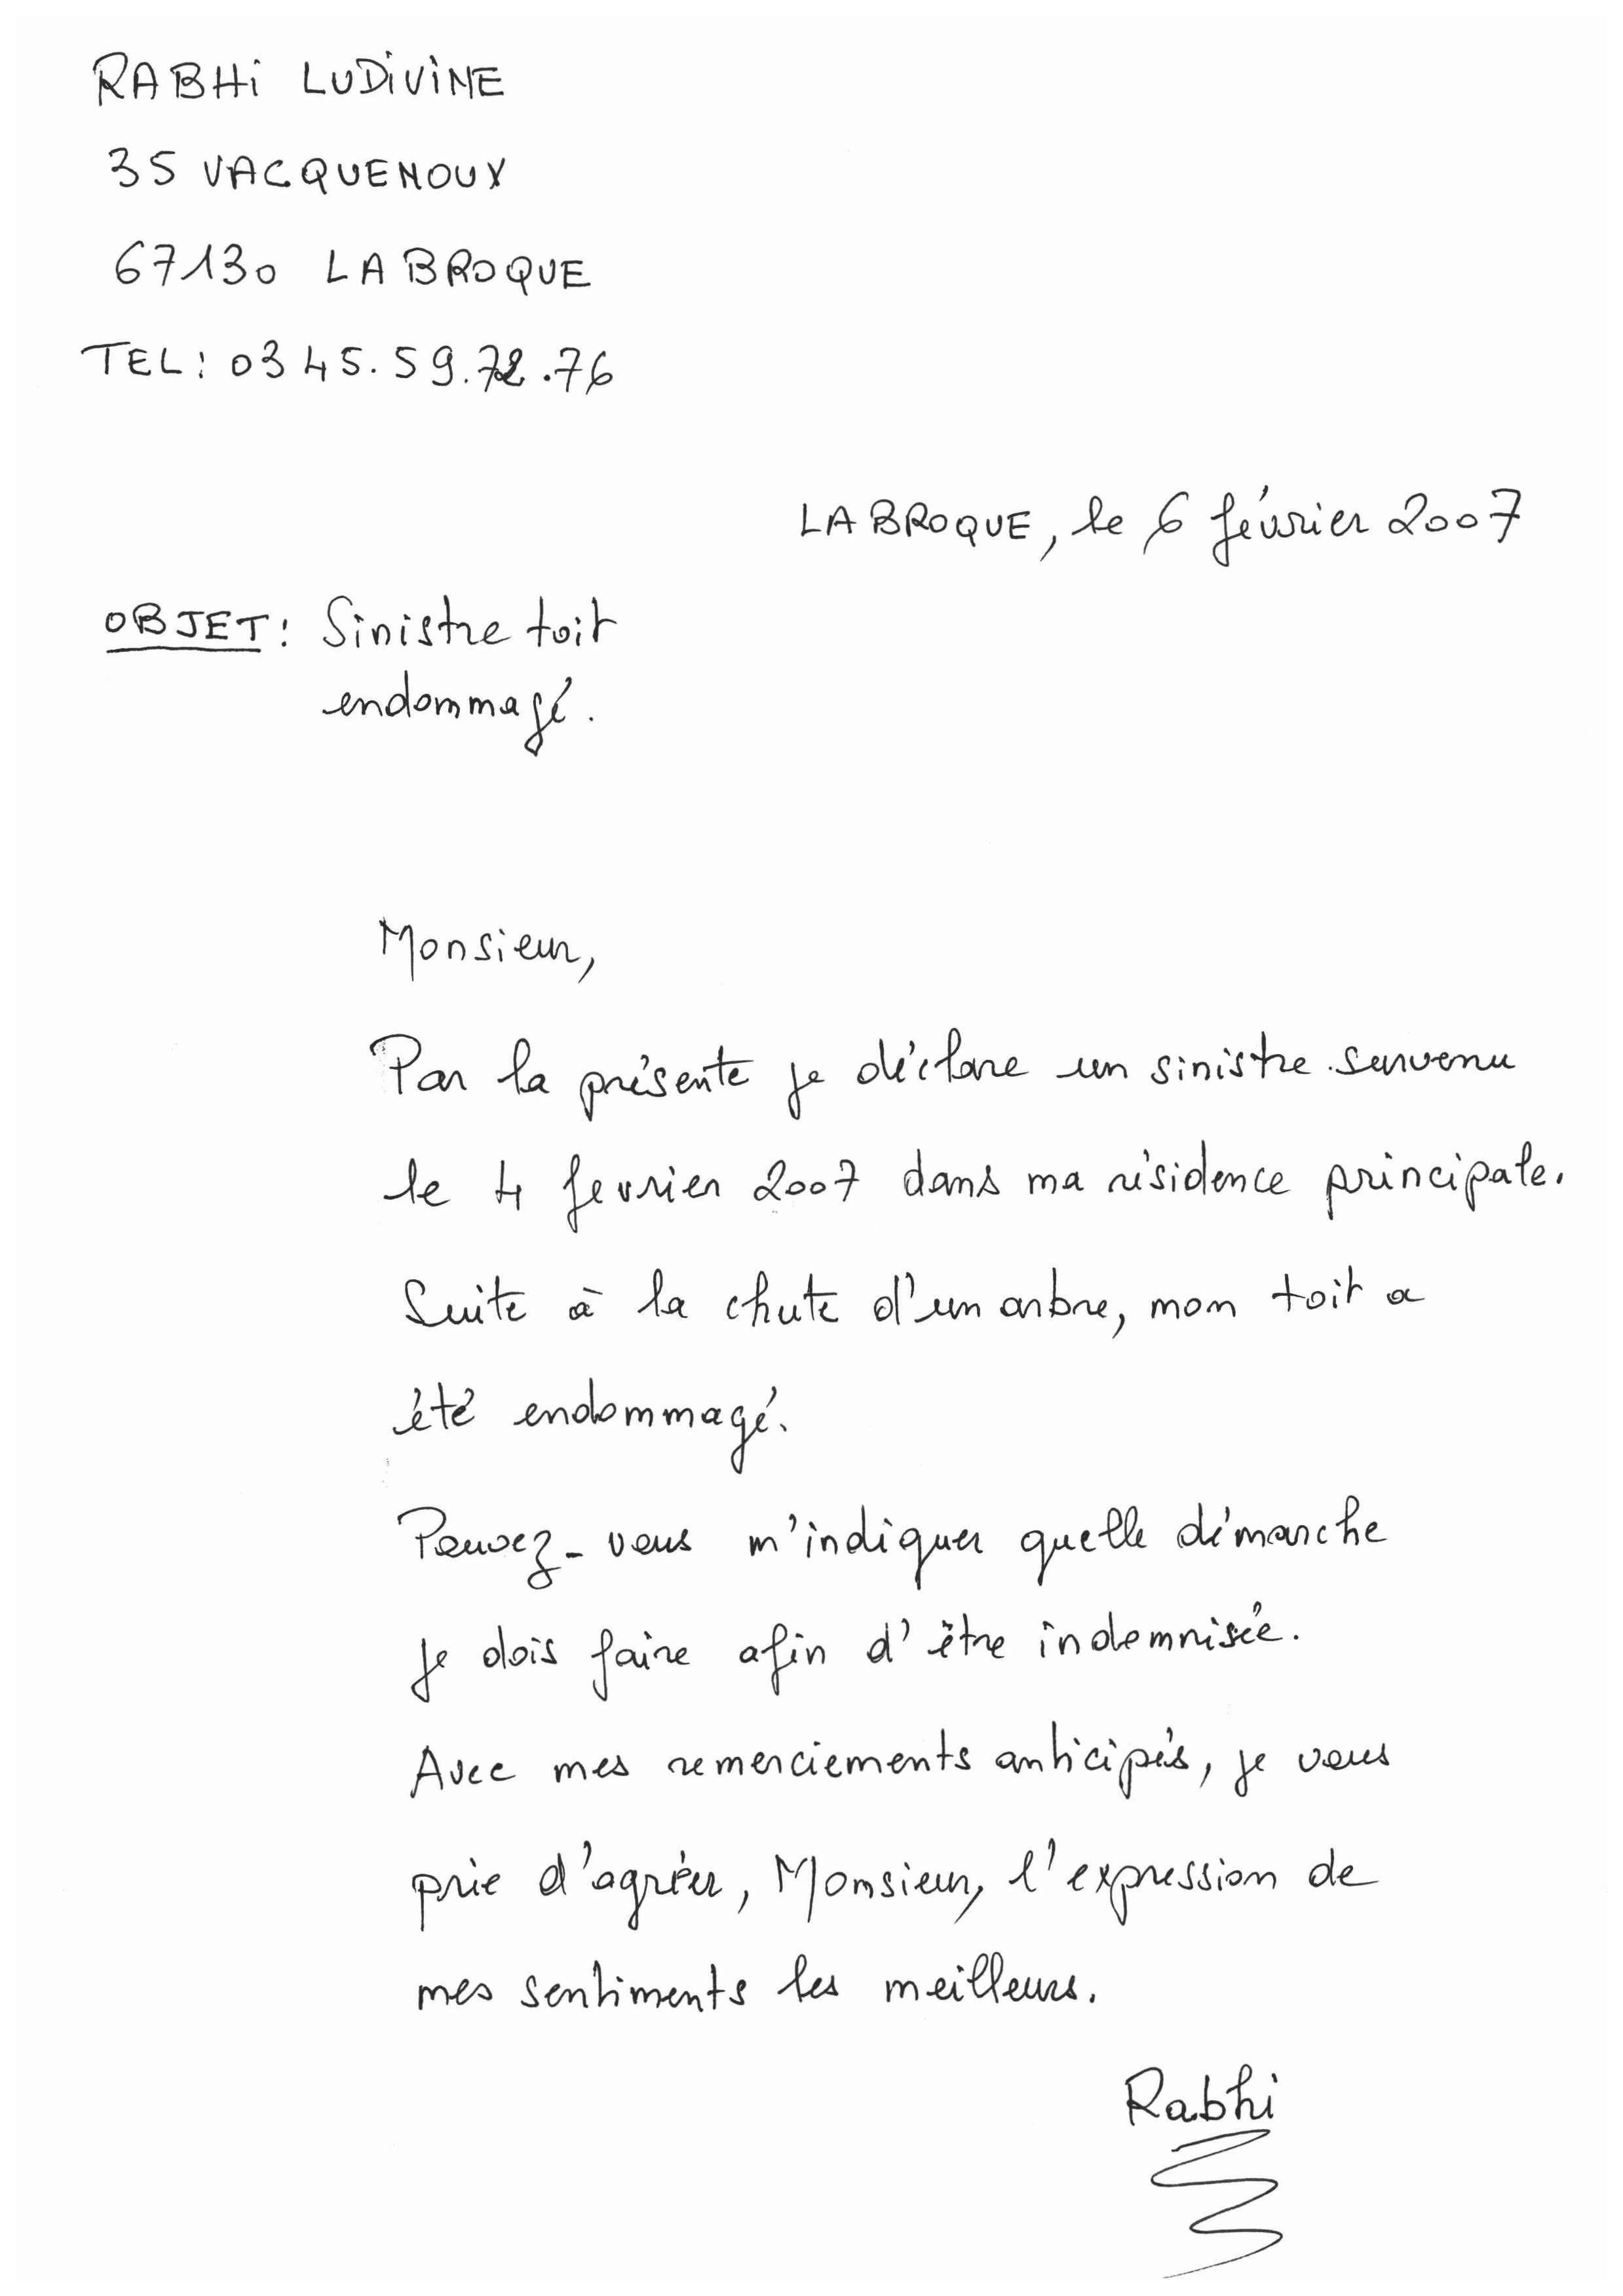 RABHi LUDiViNE
35 VACQUENOUX
67130 LA BROQUE
TEL: 03 45.59.72.76
LA BROQUE, le 6 février 2007
OBJET: Sinistre toit
endommagé.
Monsieur,
Par la présente je déclare un sinistre survenu
le 4 fevrier 2007 dans ma résidence principale.
Suite à la chute d'un arbre, mon toit a
été endommagé.
Pouvez-vous m'indiquer quelle démarche
je dois faire afin d'être indemnisée.
Avec mes remerciements anticipés, je vous
prie d'agréer, Monsieur, l'expression de
mes sentiments les meilleurs.
Rabhi